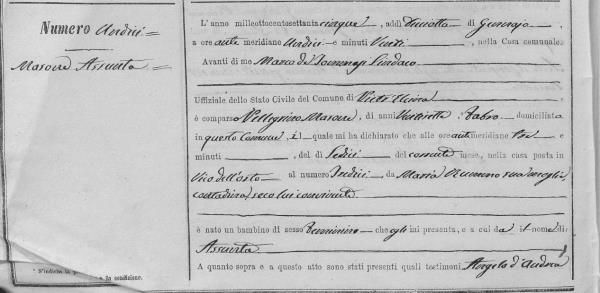 Numero Undici
Masone Assunta
L'anno milleottocentosettanta cinque, addì Diciotto di Gennajo,
a ore ante meridiane Undici e minuti Venti, nella Casa comunale.
Avanti di me Marco de Tommasi Sindaco
Uffiziale dello Stato Civile del Comune di
è comparso Pellegrino Masone, di anni Ventisette, Fabro domiciliato
in questo Comune, il quale mi ha dichiarato che alle ore ante meridiane Tre e
minuti, del dì Sedici del corrente mese, nella casa posta in
Vico dell'orto al numero Tredici, da Maria sua moglie,
contadina, seco lui convivente
è nato un bambino di sesso Femminino che egli mi presenta, e a cui da il nome di
Assunta
A quanto sopra e a questo atto sono stati presenti quali testimoni Angelo d'Andrea
la condizione.